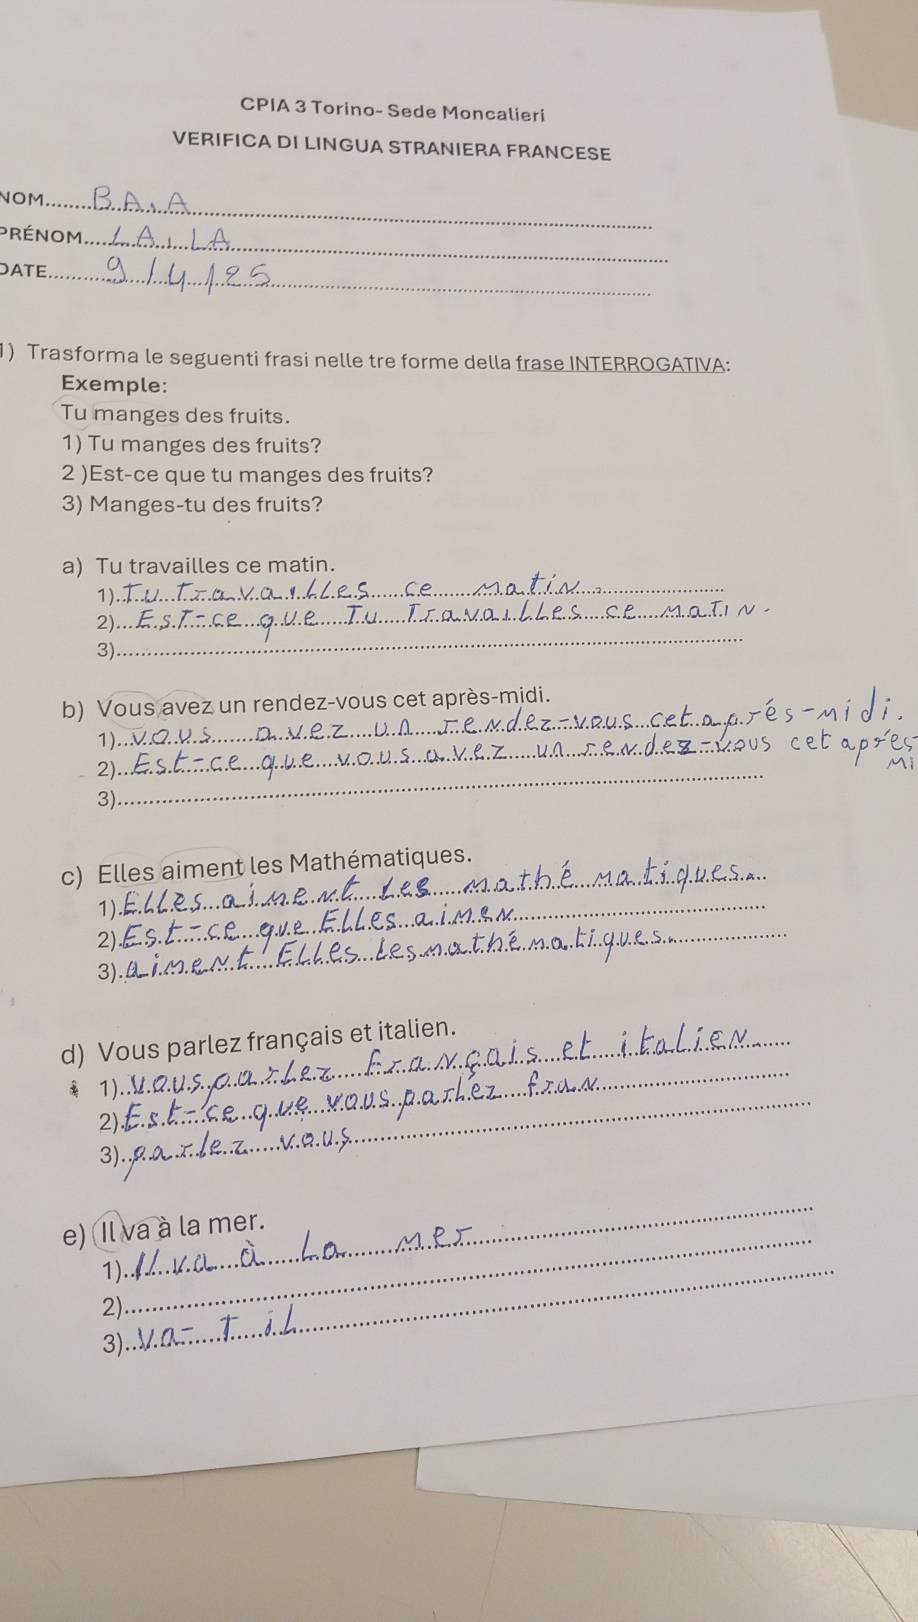 CPIA 3 Torino- Sede Moncalieri
VERIFICA DI LINGUA STRANIERA FRANCESE
NOM....... B.A.A
PRÉNOM.... L.A.LA
DATE......... 9/4/25
1) Trasforma le seguenti frasi nelle tre forme della frase INTERROGATIVA:
Exemple:
Tu manges des fruits.
1) Tu manges des fruits?
2 )Est-ce que tu manges des fruits?
3) Manges-tu des fruits?
a) Tu travailles ce matin.
1) Tu Travailles ce Matin.
2) EsT-ce que Tu Travailles ce MaTiN.
3)
b) Vous avez un rendez-vous cet après-midi.
1) vous avez un rendez-vous cet aprés-midi.
2) Est-ce que vous avez un rendez-vous cet aprés
Mi
3)
c) Elles aiment les Mathématiques.
1) Elles aiment Les mathématiques.
2) Est-ce que Elles aimen
3) aiment Elles les mathématiques.
d) Vous parlez français et italien.
1) vous parlez français et italien
2) Est-ce que vous parléz fran
3) parlez vous
e) Il va à la mer.
1) Il va à La mer
2)
3) va-T il